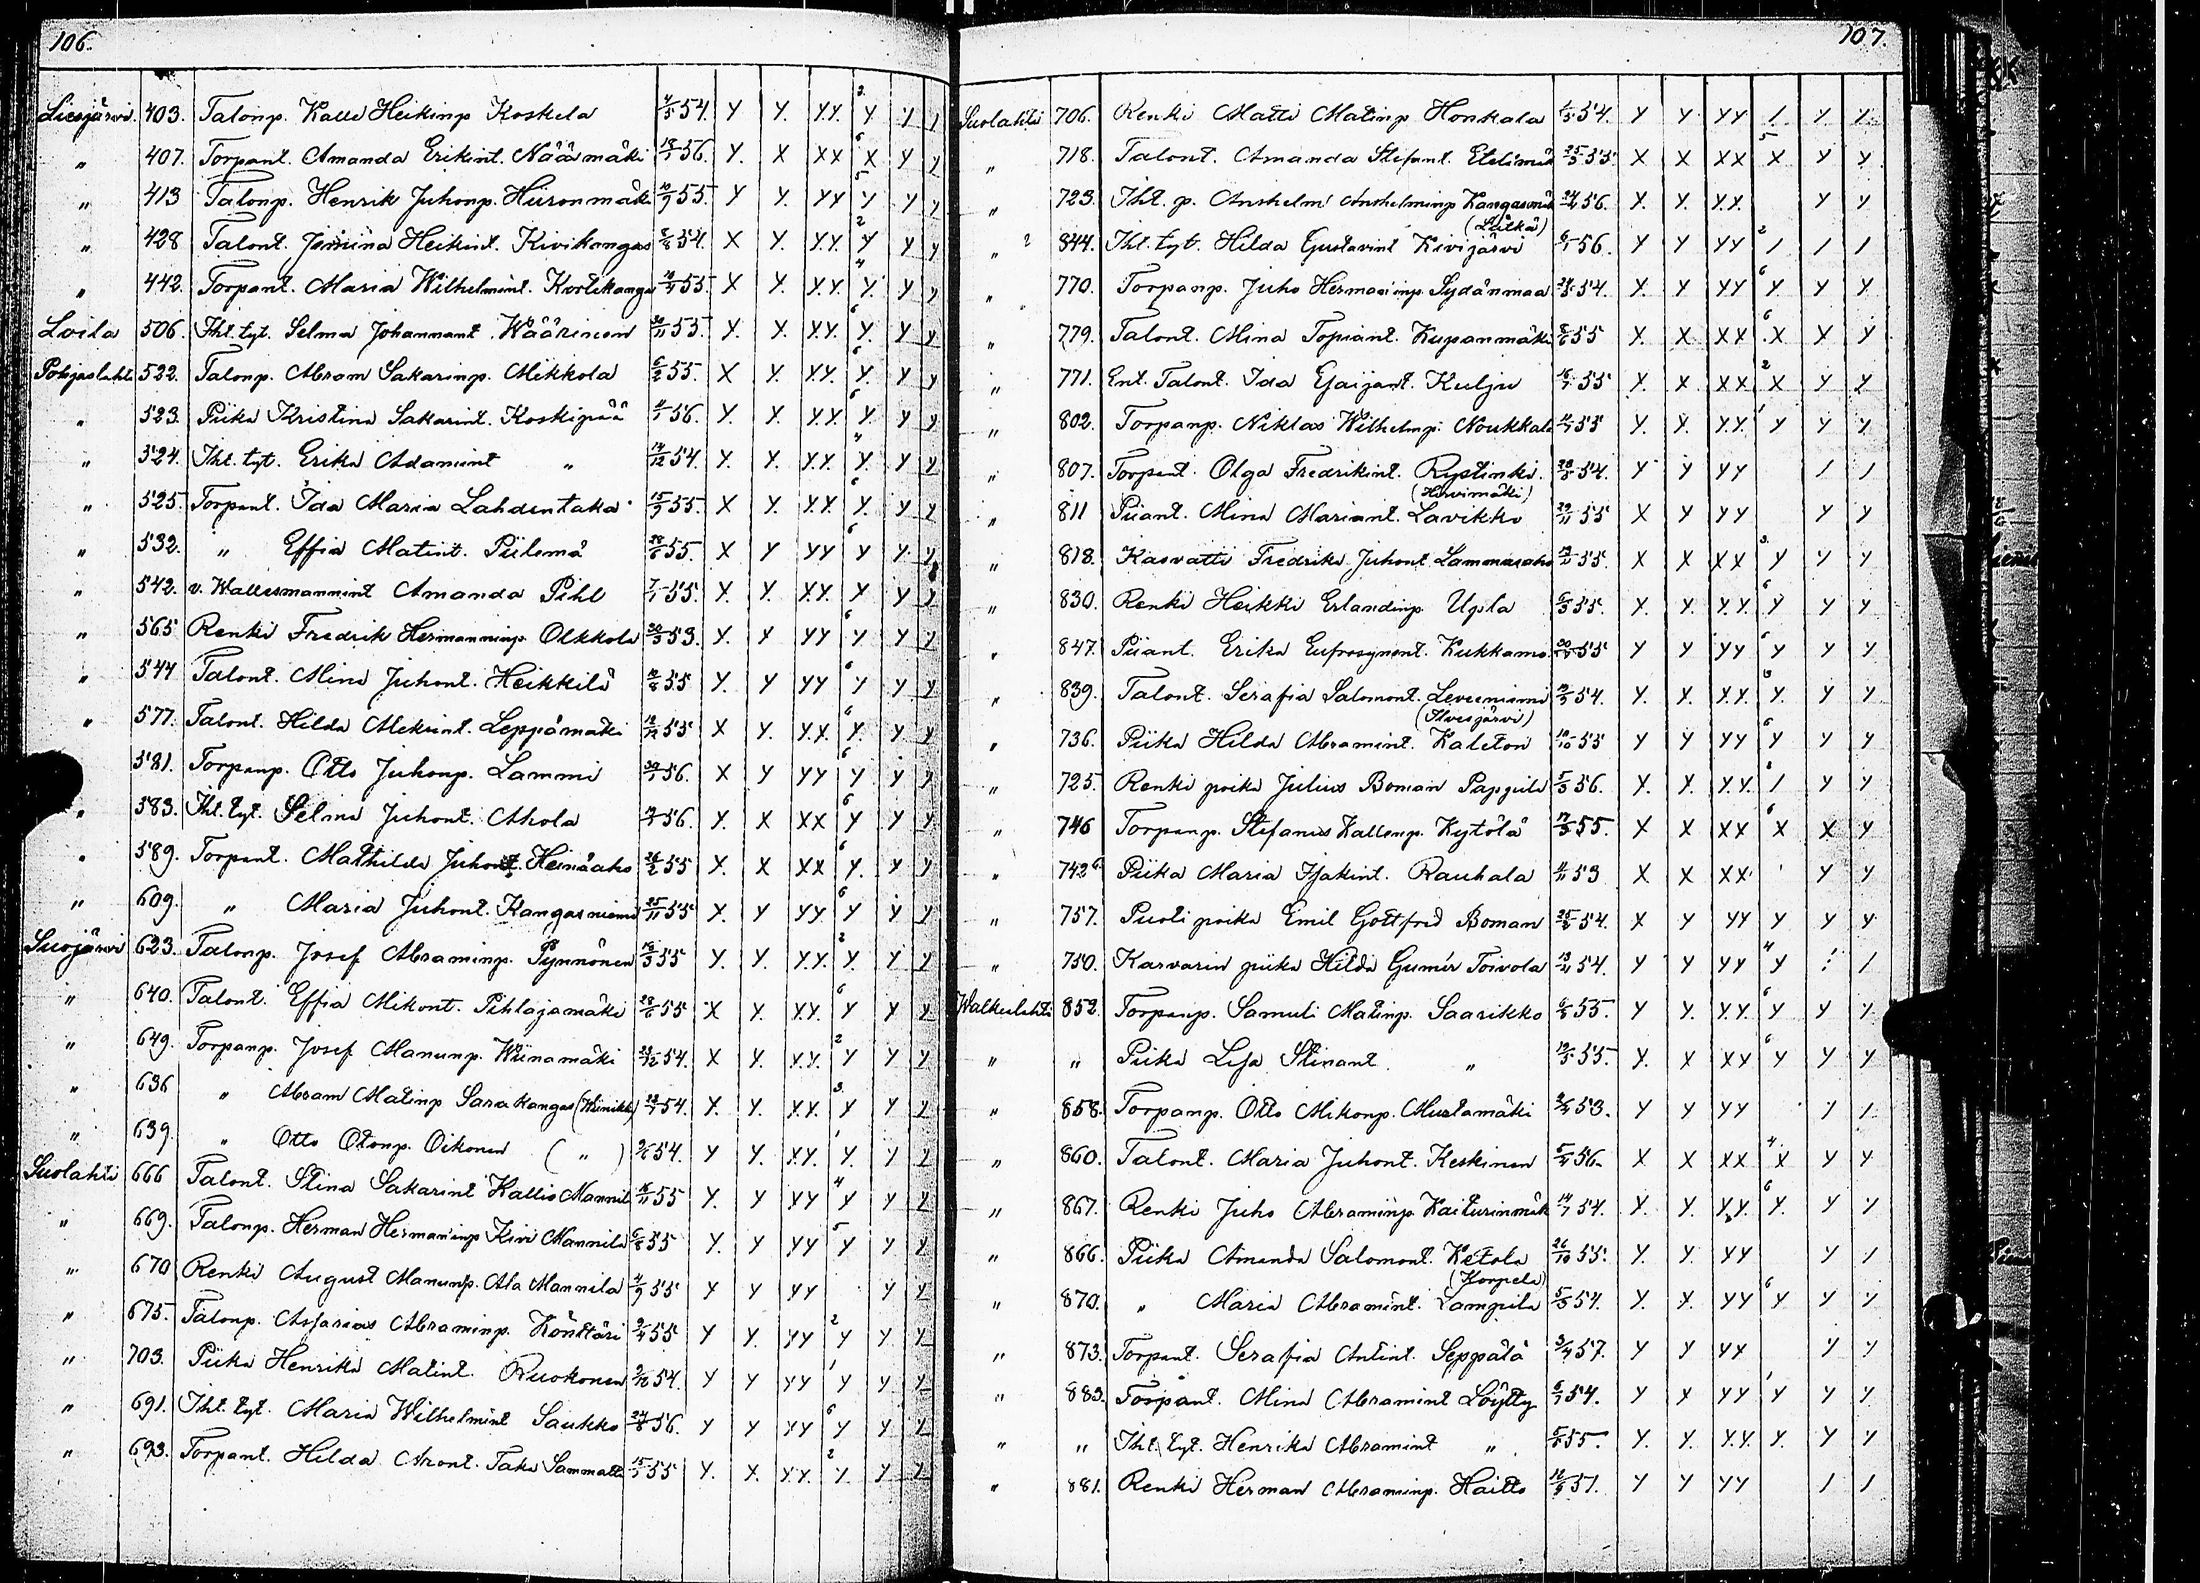 106.
Liesjärvi. 403. Talonp. Kalle Heikinp Koskela 4/5 54. Y Y. YY. 2 Y Y Y
" 407. Torpant. Amanda Erikint. Näämäki 18/1 56. Y. X XX 6 X Y Y
" 413 Talonp. Henrik Juhonp. Hüronmäk 10/9 55. Y Y. YY 5 Y Y Y
" 428 Talont. Heikint. Kivikangas 54. X Y. YY. 2 Y Y Y
" 442. Torpant. Maria Wilhelmint. Kortekanga 55. X Y. YY. 4 Y. Y Y
Loila 506. Iht. tyt. Selma Johannant. Wäärinen 55. Y. Y. YY. 6 Y. Y Y
Pohjaslahti 522. Talonp. Abram Sakarinp. Mikkola 6/2 55. X Y. YY. 6 Y. Y Y
" 523. Piika Kristina Sakarint. Koskipää 4/1 56. Y. X. YY. 6 Y. Y Y
" 524. Iht. tyt. Erika Adamint " 14/12 54. Y. Y. YY. 4 Y. Y Y
" 525. Torpant. Ida Maria Lahdentaka 15/9 55. X Y. YY 6 Y. Y Y
" 532. " Effia Matint. Piilemä 55. X Y YY 6 Y Y. Y
" 542. v. Wallesmannint Amanda Pihl 7/1 55. Y. Y. YY. X Y Y
" 565 Renki Fredrik Hermanninp. Olkkola 53. Y. Y YY 6 Y Y Y
" 544 Talont. Mina Juhont. Heikkilä 55 Y. Y YY 6 Y Y. Y
" 577. Talont. Hilda Alekrint. Leppämäki 18/12 55 X Y. YY. 6 Y. Y Y
581. Torpanp. Otto Juhonp. Lammi 56. X Y YY 6 Y. Y Y
" 583. Iht. tyt. Selma Juhont. Ahola 56. Y. X XX 6 Y Y Y
" 589. Torpant. Mathilda Juhont. Heinäaho 55 X. X XX 6 Y. Y Y
" 609. " Maria Juhont. Kangasniemi 25/11 55 X. Y YY. 6 Y Y Y
Suojärvi 623. Talonp. Josef Abraminp. Pynnönen 19/3 55 Y. Y. YY. 2 Y. Y Y
" 640. Talont. Effia Mikont. Pihlajamäki 28/6 55 X Y. YY. 6 Y Y Y
" 649. Torpanp. Josef Manunp. Wiinamäki 54. X Y. YY. 2 Y Y Y
" 636 " Abram Matinp Sarakangas (Wiinikk) 54. Y. Y. YY. 3. Y Y Y
" 639. " Otto Otonp. Oikonen ( " ) 54. Y Y. YY. 1 Y. Y Y
Suolahti 666 Talont. Stina Sakarint Kallio Mannil 55 Y. Y YY 4 Y Y Y
" 669. Talonp. Herman Hermaninp Kivi Mannila 6/8 55 Y. Y YY 5 Y Y Y
" 670 Renki August Manunp. Ala Mannila 4/9 55 Y Y YY Y Y
" 675. Talonp. Asarias Abraminp. Könttäri 9/4 55 Y Y. YY 2 Y Y. Y
" 703. Piika Henrika Matint. Ruokonen 2/10 54. Y Y YY 1 Y Y Y
" 691. Iht. tyt. Maria Wilhelmint Saukko 24/8 56. Y Y YY 6 Y Y Y
" 693. Torpant. Hilda Aront. Taka Sammatti 15/7 55 Y. X. YY. 2 Y. Y Y
107.
Suolahti 706. Renki Matti Matinp Honkala 1/5 54. Y Y YY 1 Y. Y.
" 718. Talont. Amanda Stefant. Etelämä 25/3 55. X X XX 5 X Y Y.
" 723. Iht. p. Anshelm Anshelminp Kangasmä 56. Y. Y. YY. Y Y
(Lätkä)
" 2 844. Iht. tyt. Hilda Gustavint Kivijärvi 6/1 56. Y Y YY 2 1 1 1
" 770. Torpanp. Juho Hermaninp. Sydänmaa 54. Y. Y. YY 6 Y. Y Y
" 779. Talont. Mina Topiant. Kupanmäki 55 X. X XX 6 X X Y
" 771. Ent. Talont. Ida Esaijant. Kulju 16/7 55 Y. X XX 2 X Y Y
" 802. Torpanp. Niklas Wilhelmp. Noukkala 55 Y. Y. YY. 1 Y Y Y.
" 807. Torpant. Olga Fredrikint. Rystinki. 54. Y Y YY 1 1
(Hirvimäki)
" 811 Piiant. Mina Mariant. Lavikko 29/11 55 X Y YY Y Y
" 818. Kasvatti Fredrika Juhont. Lammasaho 55. X X XX 3. Y Y Y
" 830. Renki Heikki Erlandinp. Ugla 55. Y. Y. YY. 6 Y Y Y
" 847. Piiant. Erika Eufrosynent. Kukkamo. 55 Y Y YY 6 Y Y Y
" 839. Talont. Serafia Salomont. Leveeniemi 54. Y. Y. YY. 3 Y. Y Y
(Ilvesjärvi)
" 736. Piika Hilda Abramint. Kaleton 18/10 55 Y Y YY 6 Y Y Y
" 725. Renki poika Julius Boman Pappila 5/3 56. Y. Y. YY. 6 1 Y Y
" 746 Torpanp. Stefanus Kallenp. Kytölä 17/3 55. X X XX 6 X X Y
" 742 6 Piika Maria Isakint. Rauhala 53 X X XX. Y Y
" 757. Puoti poika Emil Gottfrid Boman 54. X Y YY Y Y Y
" 750. Karvarin piika Hilda Gumér Toivola 54. Y Y YY 4 Y : 1
Walkealahti 852. Torpanp. Samuli Matinp. Saarikko 55. Y Y. YY. 6 Y Y Y
" " Piika Lisa Stinant " 19/5 55. Y. X XY 6 Y Y Y
" 858. Torpanp. Otto Mikonp. Mustamäki 53. Y Y YY Y 1
" 860. Talont. Maria Juhont. Keskinen 5/4 56. X X XX 4 X Y Y
" 867. Renki Juho Abraminp. Kaiturinmäk 14/7 54. Y. Y. YY. 6 Y. Y Y
" 866. Piika Amanda Salomont. Ketola 26/10 55. Y. Y. YY Y 1
(Korpela)
" 870. " Maria Abramint. Lampila 5/3 54. Y. Y. YY 6 Y Y Y
" 873. Torpant. Serafia Antint. Seppälä 3/4 57. Y Y YY Y Y
" 883. Torpant. Mina Abramint Löytty 6/7 54. Y X YY 1 Y Y Y
" " Iht. tyt. Henrika Abramint " 55. Y. Y. YY. Y. Y Y
" 881. Renki Herman Abraminp. Haitto 51. Y Y YY 1 1